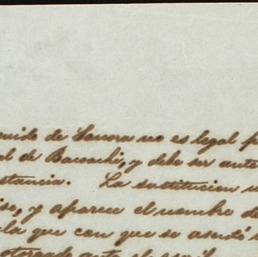 nido de Sonora no es legal p
al de Bacoachi, y debe ser ante
stancia. La sustitucion n
so, y aparece el nombre de
la que con que se asentó
otorgado ante el